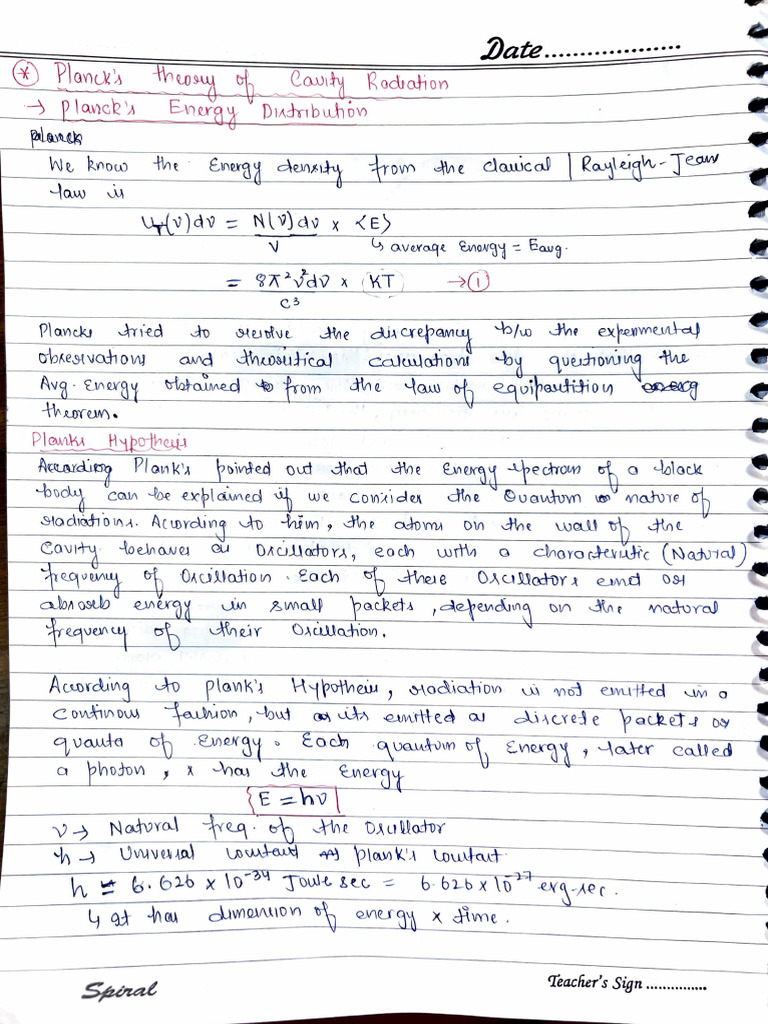 Date...................
* Planck's theory of Cavity Radiation
→ Planck's Energy Distribution
Planck
We know the Energy density from the classical / Rayleigh-Jean
law is
U_T(ν)dν = N(ν)dν/V × <E>
↳ average energy = Eavg.
= 8π²ν²dν/C³ × KT → ①
Plancks tried to resolve the discrepancy b/w the experimental
observations and theoritical calculations by questioning the
Avg. Energy obtained from the law of equipartition
theorem.
Planks Hypothesis
According Plank's pointed out that the Energy spectrum of a black
body can be explained if we consider the Quantum nature of
radiations. According to him, the atoms on the wall of the
cavity behaves as Oscillators, each with a characteristic (Natural)
frequency of Oscillation. Each of these Oscillators emit or
abroseb energy in small packets, depending on the natural
frequency of their Oscillation.
According to plank's Hypothesis, radiation is not emitted in a
continous fashion, but its emitted as discrete packets or
quanta of Energy. Each quantum of Energy, later called
a photon, has the Energy
E = hν
ν → Natural freq. of the Oscillator
h → Universal constant → plank's constant
h = 6.626 × 10⁻³⁴ Joule sec = 6.626 × 10⁻²⁷ erg-sec.
↳ It has dimension of energy × time.
Spiral
Teacher's Sign ...............